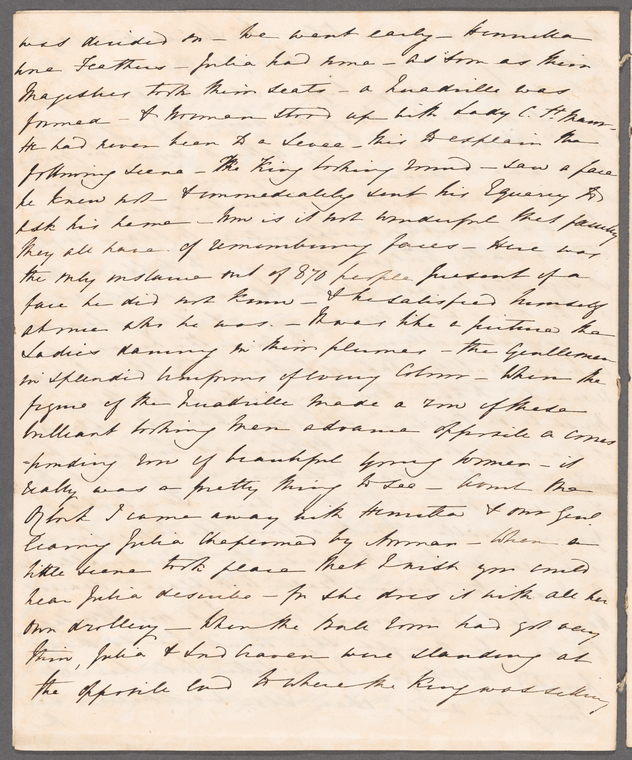 was decided on – We went early – Henrietta
wore Feathers – Julia had none – as soon as their
Magesties took their seats – a Quadrille was
formed – & Norman stood up with Lady C.
He had never been to a Levee – this to explain the
following scene – The King looking round – saw a face
he knew not – & immediately sent his Equerry to
ask his name – Now is it not wonderful that faculty
they all have of remembering faces – Here was
the only instance out of 870 people present of a
face he did not know – & he satisfied himself
at once who he was. – It was like a picture the
Ladies dancing in their plumes – the Gentlemen
in splendid Uniforms of every Colour – When the
figure of the Quadrille made a row of these
brilliant looking men advance opposite a corres
-ponding row of beautiful young women – it
really was a pretty thing to see – about
O'Clock I came away with Henrietta & our Girl
leaving Julia chaperoned by Norman – When a
little scene took place that I wish you could
hear Julia describe – for she does it with all her
own drollery – When the Ball room had got very
thin, Julia & were standing at
the opposite end to where the King was sitting